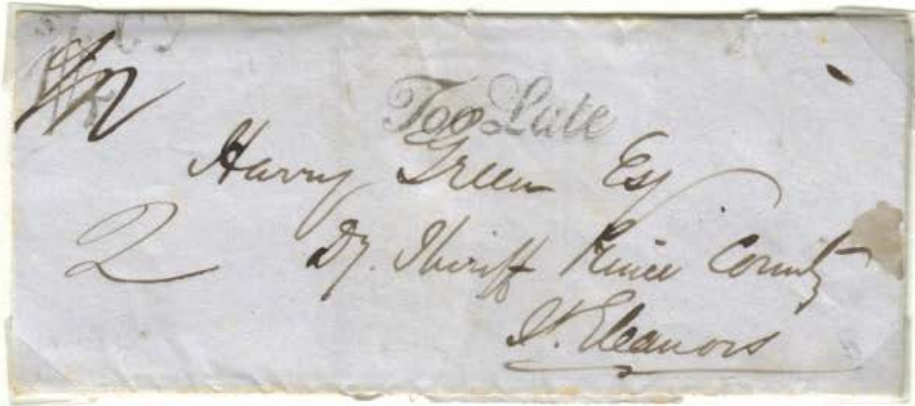 Too Late
Harry Green Esq
2 Dy. Sheriff Prince County
St. Eleanors